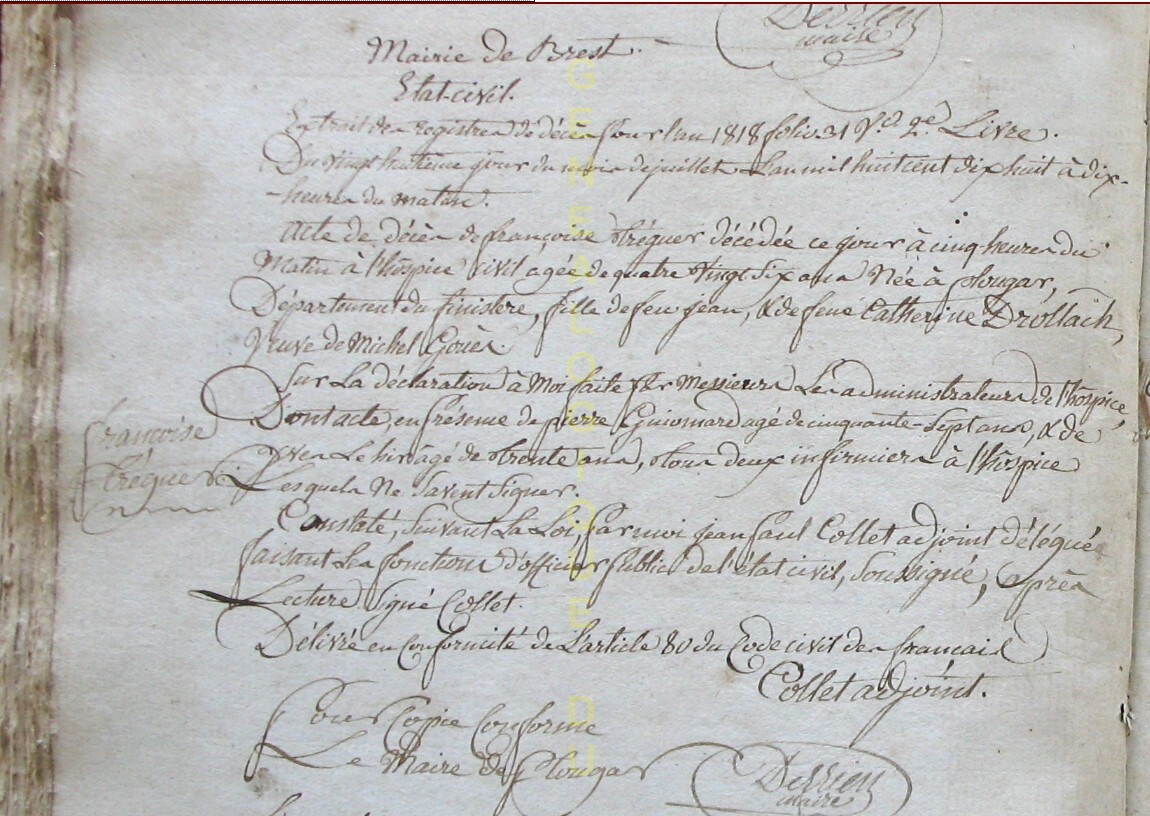 Derrien
maire
Mairie de Brest.
Etat-civil.
Extrait des registres de décès pour l'an 1818 folio 31 Vo. 2e. Livre.
Du vingt huitieme jour du mois de juillet L'an mil huit cent dix huit à dix-
-heures du matin.
Acte de décès de françoise tréguer décédée ce jour à cinq heures du
Matin à l'hospice civil agée de quatre vingt six ans Née à plougar,
Département du finistere, fille de feu jean, & de feue Catherine Drollach,
Veuve de Michel Gouès.
Sur La déclaration à Moi faite par Messieurs Les administrateurs de l'hospice
Dont acte, en présence de pierre Guiomard agé de cinquante-Sept ans, & de
yves Le hir agé de trente ans, tous deux infirmiers à l'hospice
Lesquels Ne Savent Signer.
françoise
tréguer
Constaté, Suivant La Loi, par moi jean paul Collet adjoint délégué
faisant Les fonctions d'officier public de l'état civil, Soussigné, après
Lecture Signé Collet.
Délivré en Conformité de L'article 80 du Code civil des francais
Collet adjoint.
Pour Copie Conforme
Le Maire de Plougar
Derrien
maire
GENEALOGIQUE DU